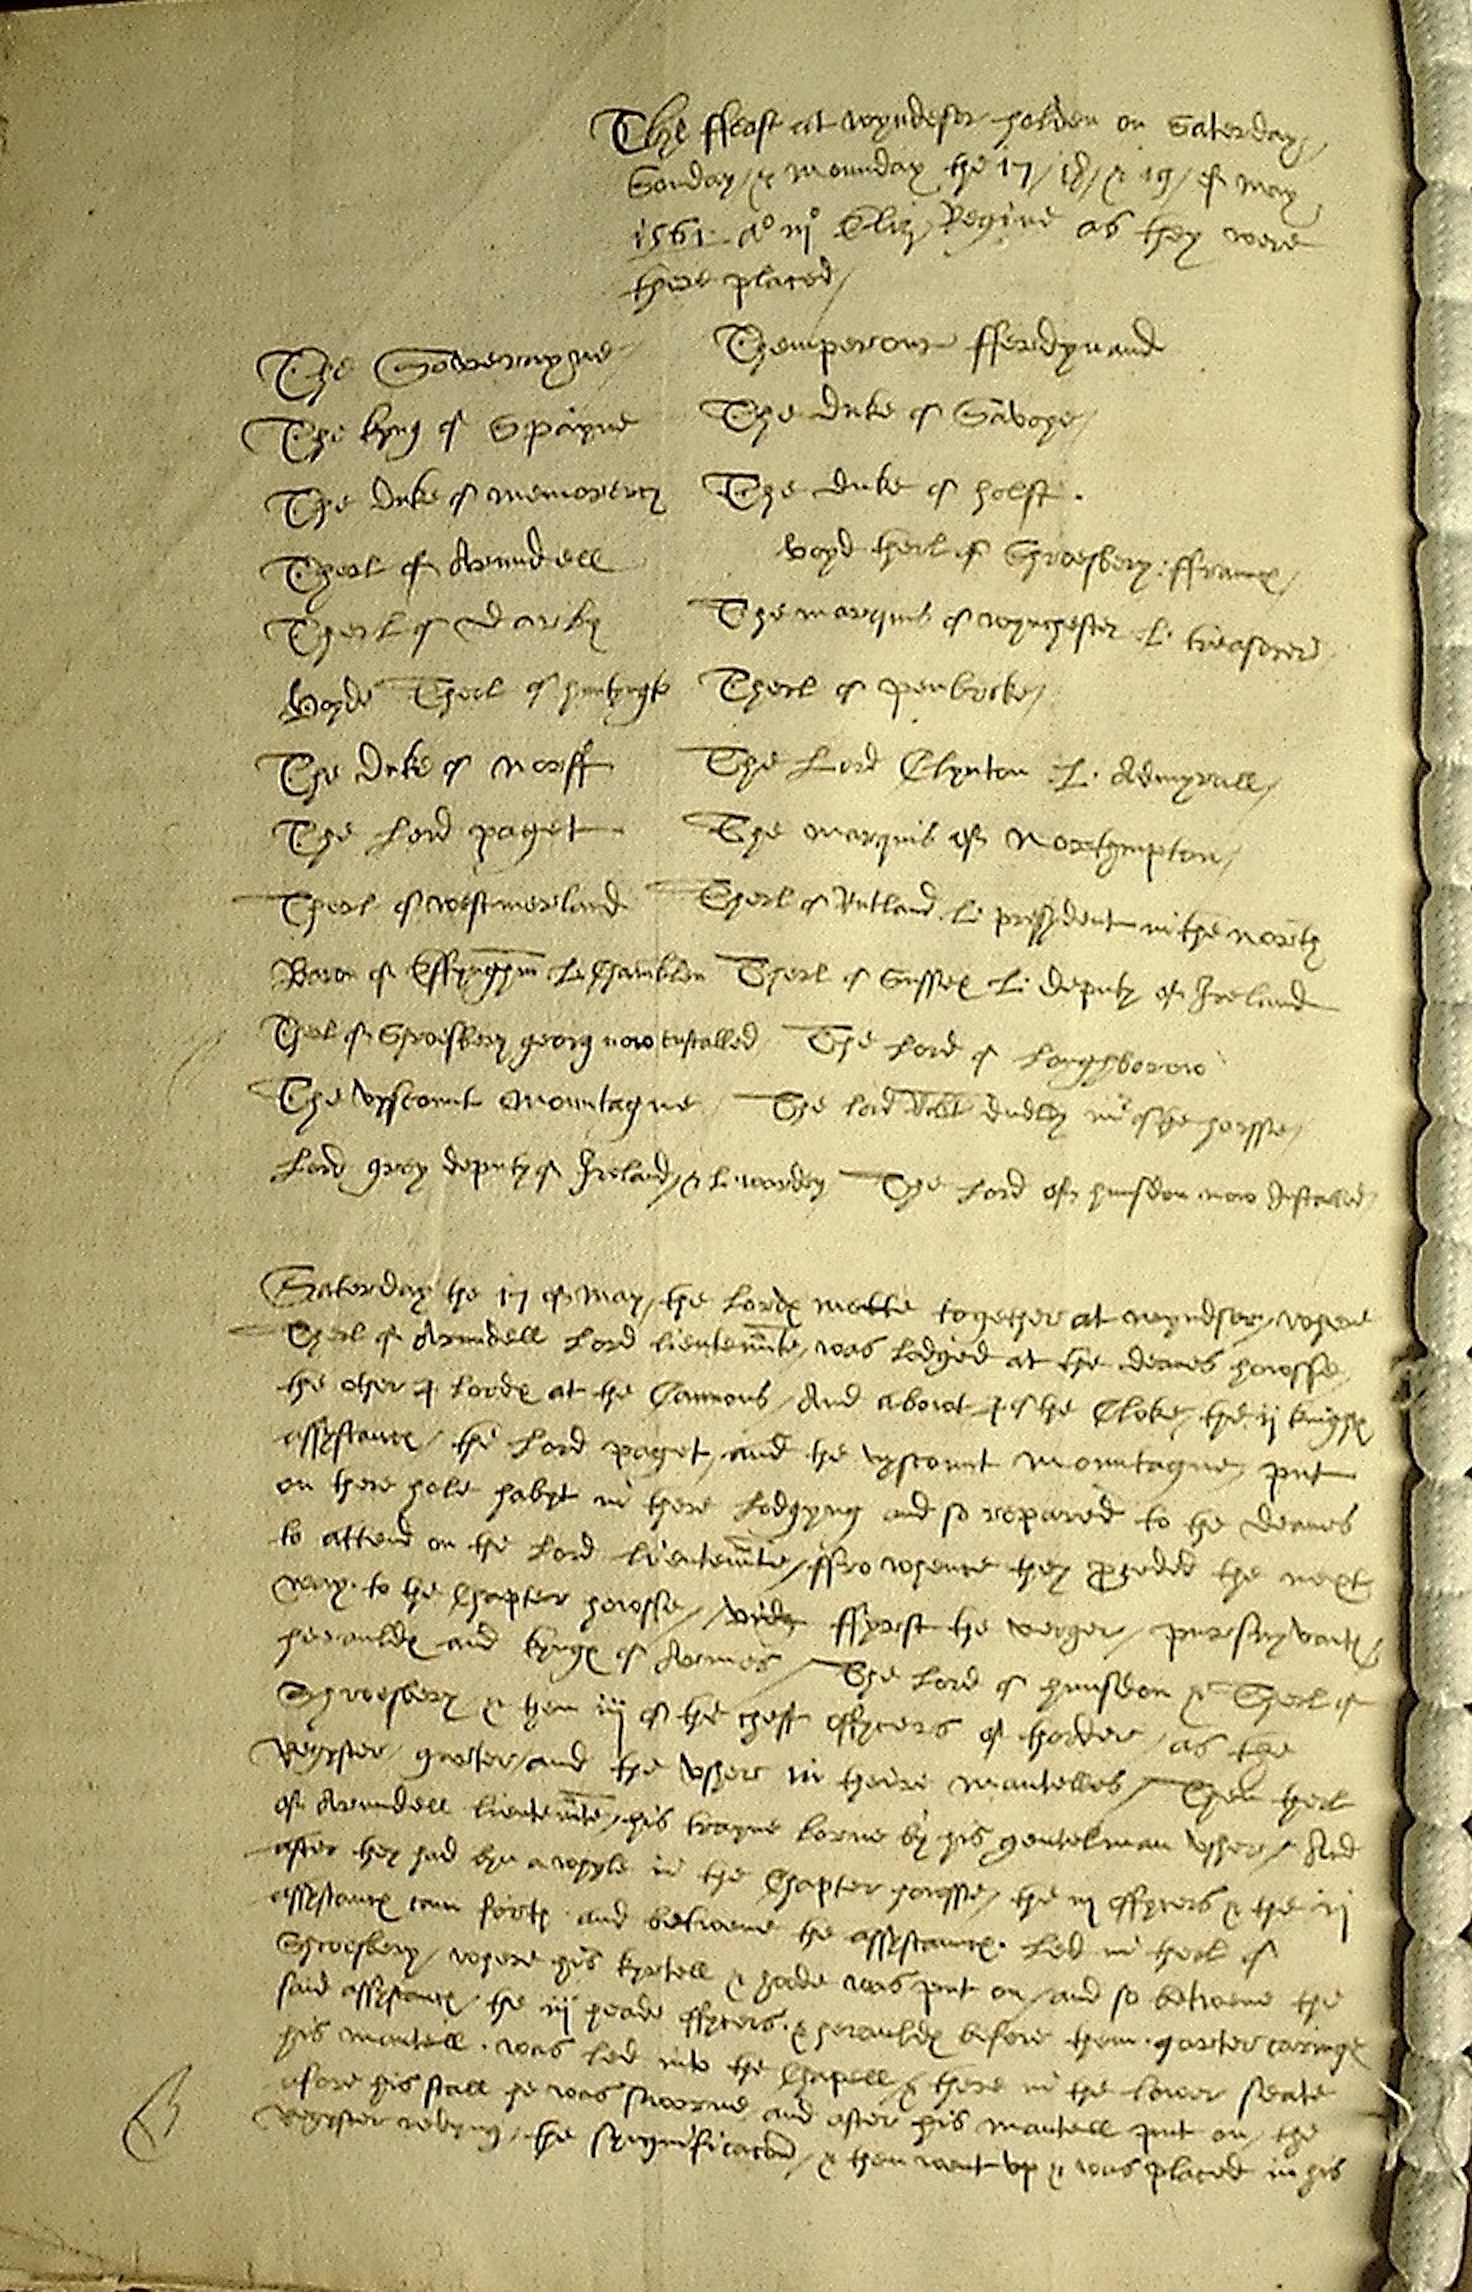 The ffeast at wyndesor holden on Saterday,
Sonday, & Mounday the 17, 18, & 19, of may
1561 Ao iijo Eliz Regine as they were
there placed,
The Soveraygne Themperour fferdynand
The kyng of Spayne The duke of Savoye,
The duke of memorency The duke of holst.
Therl of Arundell voyd therl of Shroesbery: ffrancs,
Therl of Darby The marquis of wynchester L. treasorer
voyde Therl of huntyngto Therl of penbroke,
The duke of Norff The Lord Clynton L. Admyrall,
The Lord paget The marquis of Northmpton,
Therl of westmerland Therl of Rutland L. presydent in the North
Baron of Effynghm L. Chamblen Therl of Sussex L. deputy of Ireland
Therl of Shroesbery georg now enstalled The Lord of Loughborow
The vyscount Mountague The lord Robt dudley mr of the horsse,
Lord grey deputy of Ireland, & L. warden The Lord of hunsdon now Installed,
Saterday the 17 of May, the Lordes mette together at wyndsor, where
Therl of Arundell Lord lieutennte, was lodged at the deanes howsse,
the other 4 Lordes at the Cannons, And abowt 4 of the Cloke, the ij knightes
assystantes, the Lord paget, and the vyscount Mountague, put
on there hole habyt in there Lodgyng and so repared to the deanes
to attend on the Lord lieutennte, ffro whence they proceded the next
way to the Chapter howsse, ffyrst the verger, pursayvantes,
herauldes and kynges of Armes, The Lord of hunsdon & Therl of
Shroesbery & then iij of the cheff offycers of thorder, as the
Regyster, garter, and the vsher in theire mantelles, Then therl
of Arundell lieutennte, his trayne borne by his gentelman vsher, And
after they had byn a whyle in the Chapter howsse, the iij offycers & the ij
assystantes cam forth and betwene the assystantes. Led in therl of
Shroesbery, where his kyrtell & hoode was put on, and so betwene the
said assystantes, the iij heade offycers. & herauldes before them. garter caringe
his mantell. was led into the Chapell, & there in the lower seate
afore his stall he was sworne, and after his mantell put on, the
Regyster the synyfication, & then went vp & was placed in his